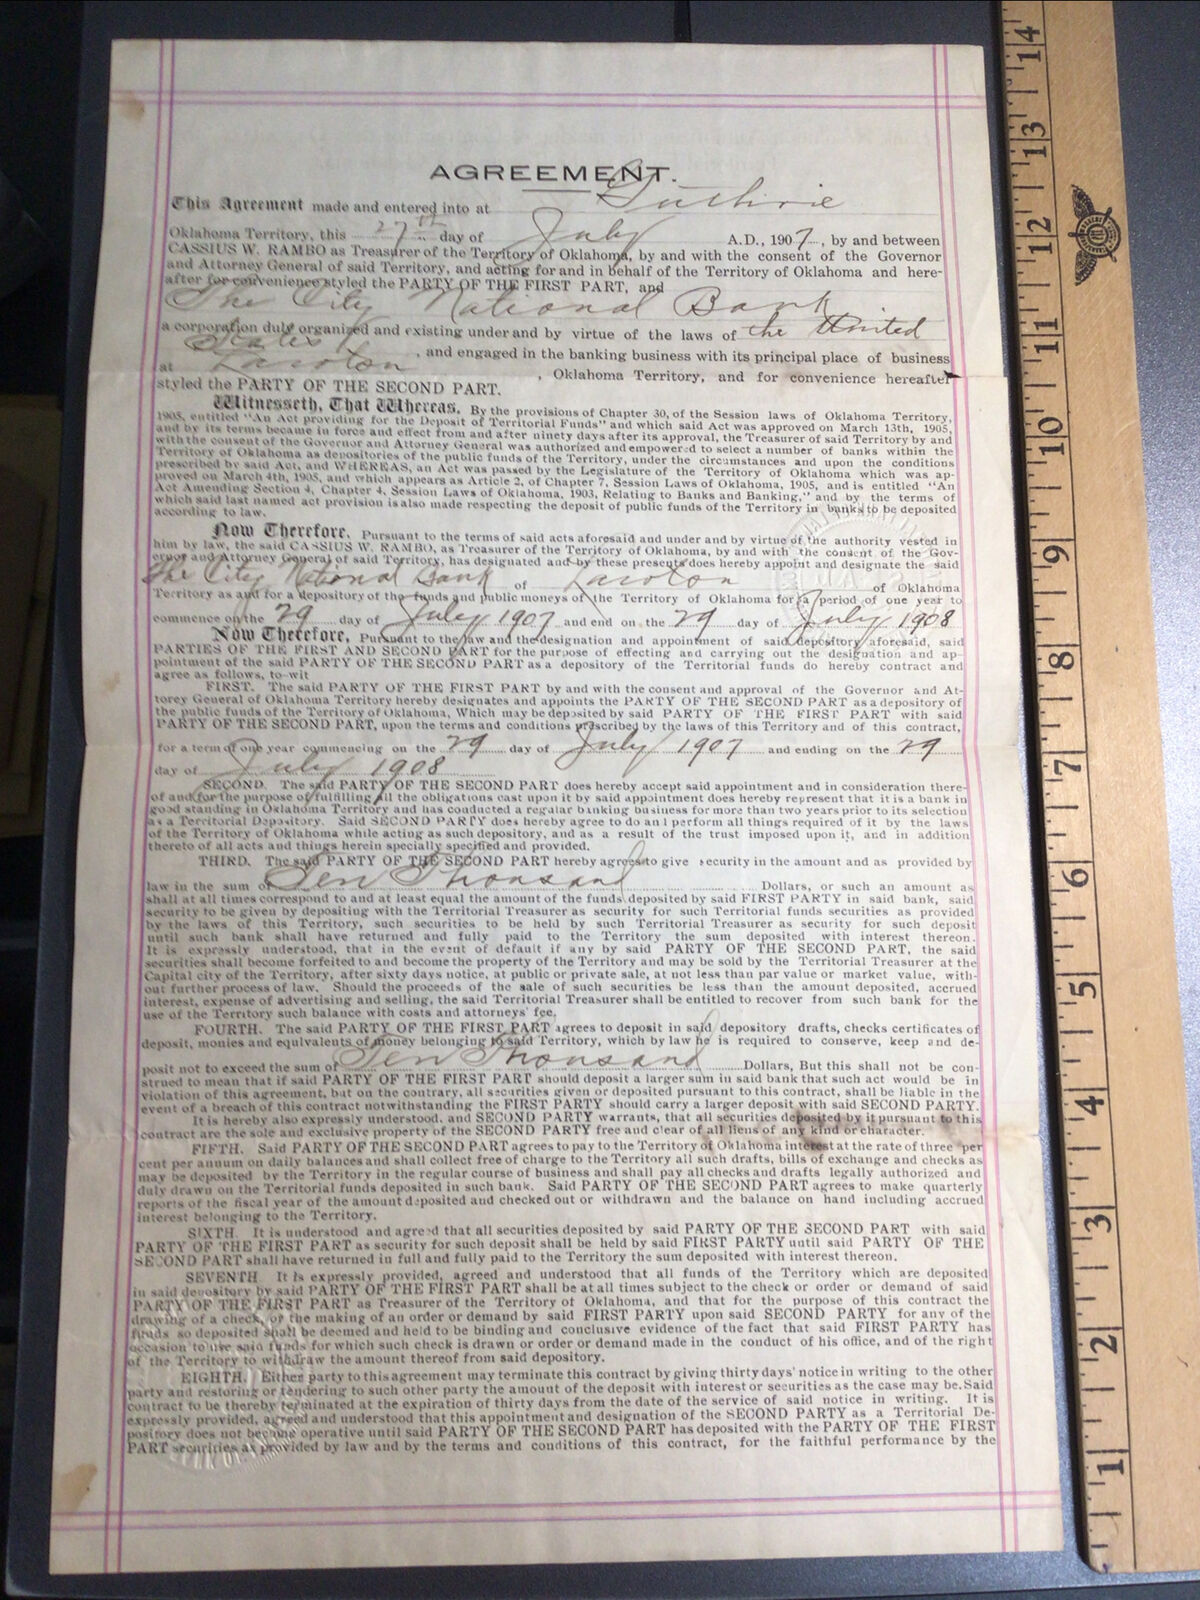 AGREEMENT.
This Agreement made and entered into at Guthrie
Oklahoma Territory, this 27th day of July A.D., 1907, by and between
CASSIUS W. RAMBO as Treasurer of the Territory of Oklahoma, by and with the consent of the Governor
and Attorney General of said Territory, and acting for and in behalf of the Territory of Oklahoma and here-
after for convenience styled the PARTY OF THE FIRST PART, and
The City National Bank
a corporation duly organized and existing under and by virtue of the laws of the United
States, and engaged in the banking business with its principal place of business
at Lawton, Oklahoma Territory, and for convenience hereafter
styled the PARTY OF THE SECOND PART.
Witnesseth, That Whereas, By the provisions of Chapter 30, of the Session laws of Oklahoma Territory,
1905, entitled "An Act providing for the Deposit of Territorial Funds" and which said Act was approved on March 13th, 1905,
and by its terms became in force and effect from and after ninety days after its approval, the Treasurer of said Territory by and
with the consent of the Governor and Attorney General was authorized and empowered to select a number of banks within the
Territory of Oklahoma as depositories of the public funds of the Territory, under the circumstances and upon the conditions
prescribed by said Act, and WHEREAS, an Act was passed by the Legislature of the Territory of Oklahoma which was ap-
proved on March 4th, 1905, and which appears as Article 2, of Chapter 7, Session Laws of Oklahoma, 1905, and is entitled "An
Act Amending Section 4, Chapter 4, Session Laws of Oklahoma, 1903, Relating to Banks and Banking," and by the terms of
which said last named act provision is also made respecting the deposit of public funds of the Territory in banks to be deposited
according to law.
Now Therefore, Pursuant to the terms of said acts aforesaid and under and by virtue of the authority vested in
him by law, the said CASSIUS W. RAMBO, as Treasurer of the Territory of Oklahoma, by and with the consent of the Gov-
ernor and Attorney General of said Territory, has designated and by these presents does hereby appoint and designate the said
The City National Bank of Lawton of Oklahoma
Territory as and for a depository of the funds and public moneys of the Territory of Oklahoma for a period of one year to
commence on the 29 day of July 1907 and end on the 29 day of July 1908
Now Therefore, Pursuant to the law and the designation and appointment of said depository aforesaid, said
PARTIES OF THE FIRST AND SECOND PART for the purpose of effecting and carrying out the designation and ap-
pointment of the said PARTY OF THE SECOND PART as a depository of the Territorial funds do hereby contract and
agree as follows, to-wit
FIRST. The said PARTY OF THE FIRST PART by and with the consent and approval of the Governor and At-
torey General of Oklahoma Territory hereby designates and appoints the PARTY OF THE SECOND PART as a depository of
the public funds of the Territory of Oklahoma, Which may be deposited by said PARTY OF THE FIRST PART with said
PARTY OF THE SECOND PART, upon the terms and conditions prescribed by the laws of this Territory and of this contract,
for a term of one year commencing on the 29 day of July 1907 and ending on the 29
day of July 1908
SECOND. The said PARTY OF THE SECOND PART does hereby accept said appointment and in consideration there-
of and for the purpose of fulfilling all the obligations cast upon it by said appointment does hereby represent that it is a bank in
good standing in Oklahoma Territory and has conducted a regular banking business for more than two years prior to its selection
as a Territorial Depository. Said SECOND PARTY does hereby agree to do and perform all things required of it by the laws
of the Territory of Oklahoma while acting as such depository, and as a result of the trust imposed upon it, and in addition
thereto of all acts and things herein specially specified and provided.
THIRD. The said PARTY OF THE SECOND PART hereby agrees to give security in the amount and as provided by
law in the sum of Ten Thousand Dollars, or such an amount as
shall at all times correspond to and at least equal the amount of the funds deposited by said FIRST PARTY in said bank, said
security to be given by depositing with the Territorial Treasurer as security for such Territorial funds securities as provided
by the laws of this Territory, such securities to be held by such Territorial Treasurer as security for such deposit
until such bank shall have returned and fully paid to the Territory the sum deposited with interest thereon.
It is expressly understood, that in the event of default if any by said PARTY OF THE SECOND PART, the said
securities shall become forfeited to and become the property of the Territory and may be sold by the Territorial Treasurer at the
Capital city of the Territory, after sixty days notice, at public or private sale, at not less than par value or market value, with-
out further process of law. Should the proceeds of the sale of such securities be less than the amount deposited, accrued
interest, expense of advertising and selling, the said Territorial Treasurer shall be entitled to recover from such bank for the
use of the Territory such balance with costs and attorneys' fee.
FOURTH. The said PARTY OF THE FIRST PART agrees to deposit in said depository drafts, checks certificates of
deposit, monies and equivalents of money belonging to said Territory, which by law he is required to conserve, keep and de-
posit not to exceed the sum of Ten Thousand Dollars, But this shall not be con-
strued to mean that if said PARTY OF THE FIRST PART should deposit a larger sum in said bank that such act would be in
violation of this agreement, but on the contrary, all securities given or deposited pursuant to this contract, shall be liable in the
event of a breach of this contract notwithstanding the FIRST PARTY should carry a larger deposit with said SECOND PARTY.
It is hereby also expressly understood, and SECOND PARTY warrants, that all securities deposited by it pursuant to this
contract are the sole and exclusive property of the SECOND PARTY free and clear of all liens of any kind or character.
FIFTH. Said PARTY OF THE SECOND PART agrees to pay to the Territory of Oklahoma interest at the rate of three per
cent per annum on daily balances and shall collect free of charge to the Territory all such drafts, bills of exchange and checks as
may be deposited by the Territory in the regular course of business and shall pay all checks and drafts legally authorized and
duly drawn on the Territorial funds deposited in such bank. Said PARTY OF THE SECOND PART agrees to make quarterly
reports of the fiscal year of the amount deposited and checked out or withdrawn and the balance on hand including accrued
interest belonging to the Territory.
SIXTH. It is understood and agreed that all securities deposited by said PARTY OF THE SECOND PART with said
PARTY OF THE FIRST PART as security for such deposit shall be held by said FIRST PARTY until said PARTY OF THE
SECOND PART shall have returned in full and fully paid to the Territory the sum deposited with interest thereon.
SEVENTH It is expressly provided, agreed and understood that all funds of the Territory which are deposited
in said depository by said PARTY OF THE FIRST PART shall be at all times subject to the check or order or demand of said
PARTY OF THE FIRST PART as Treasurer of the Territory of Oklahoma, and that for the purpose of this contract the
drawing of a check or the making of an order or demand by said FIRST PARTY upon said SECOND PARTY for any of the
funds so deposited shall be deemed and held to be binding and conclusive evidence of the fact that said FIRST PARTY has
occasion to use said funds for which such check is drawn or order or demand made in the conduct of his office, and of the right
of the Territory to withdraw the amount thereof from said depository.
EIGHTH. Either party to this agreement may terminate this contract by giving thirty days' notice in writing to the other
party and restoring or tendering to such other party the amount of the deposit with interest or securities as the case may be. Said
contract to be thereby terminated at the expiration of thirty days from the date of the service of said notice in writing. It is
expressly provided, agreed and understood that this appointment and designation of the SECOND PARTY as a Territorial De-
pository does not become operative until said PARTY OF THE SECOND PART has deposited with the PARTY OF THE FIRST
PART securities as provided by law and by the terms and conditions of this contract, for the faithful performance by the
14
13
12
11
10
9
8
7
6
5
4
3
2
1